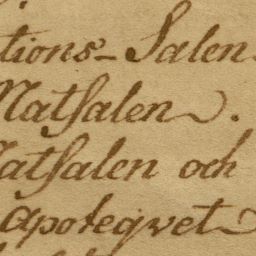 tions-Salen
Matsalen.
Matsalen och
Apoteqvet